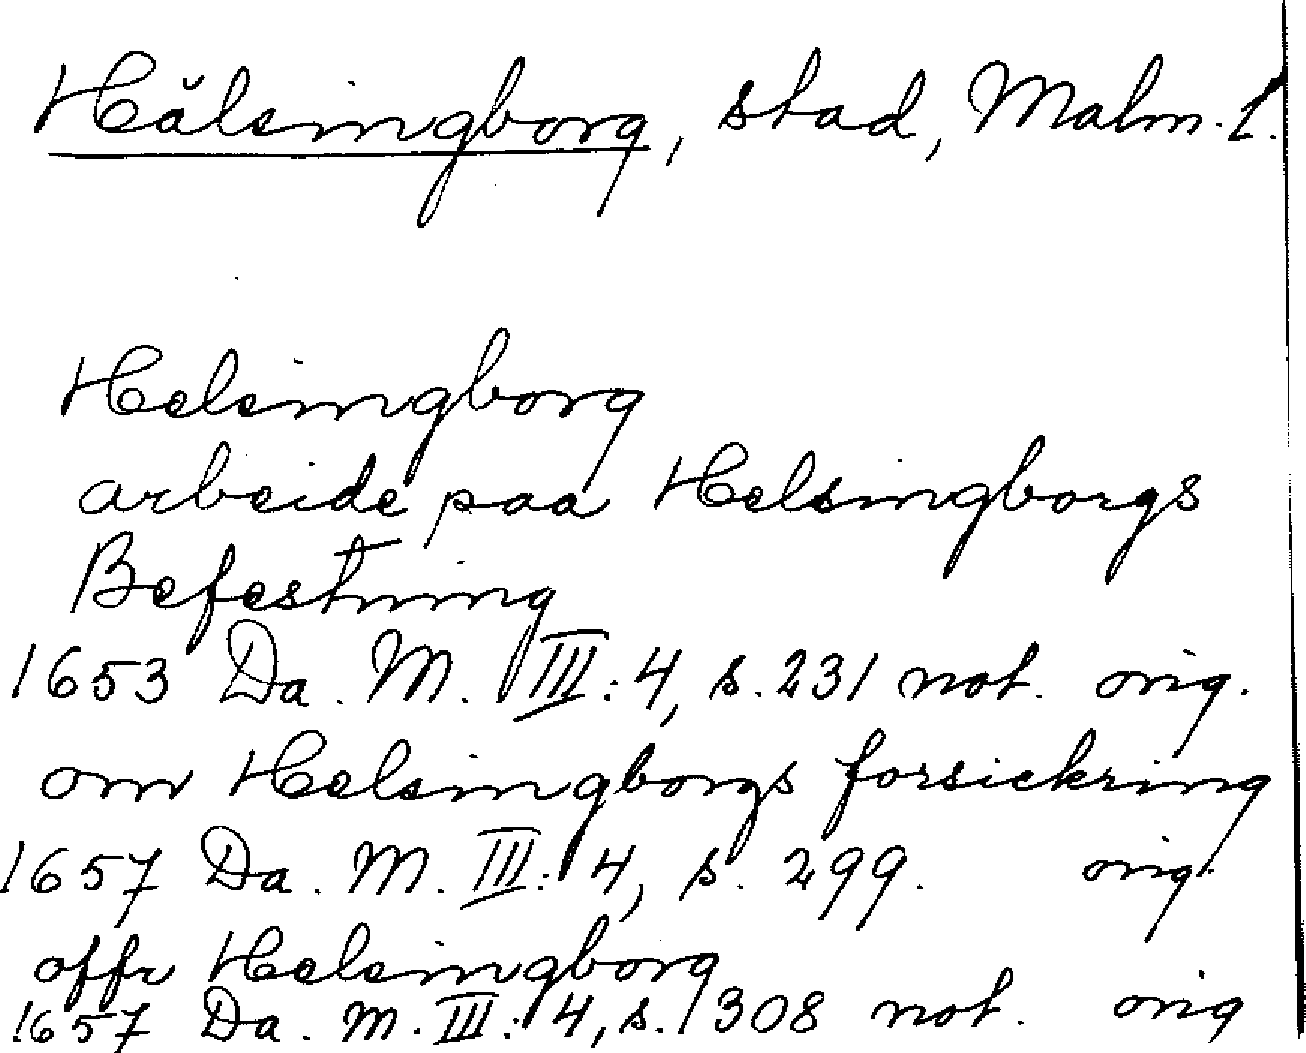 Hälsingborg, stad, Malm. l.
Helsingborg
arbeide paa Helsingborgs
Befestning
1653 Da. M. III: 4, s. 231 not. orig.
om Helsingborgs forsickring
1657 Da. M. III: 4, s. 299. orig.
offr Helsingborg
1657 Da. M. III: 4, s. 308 not. orig